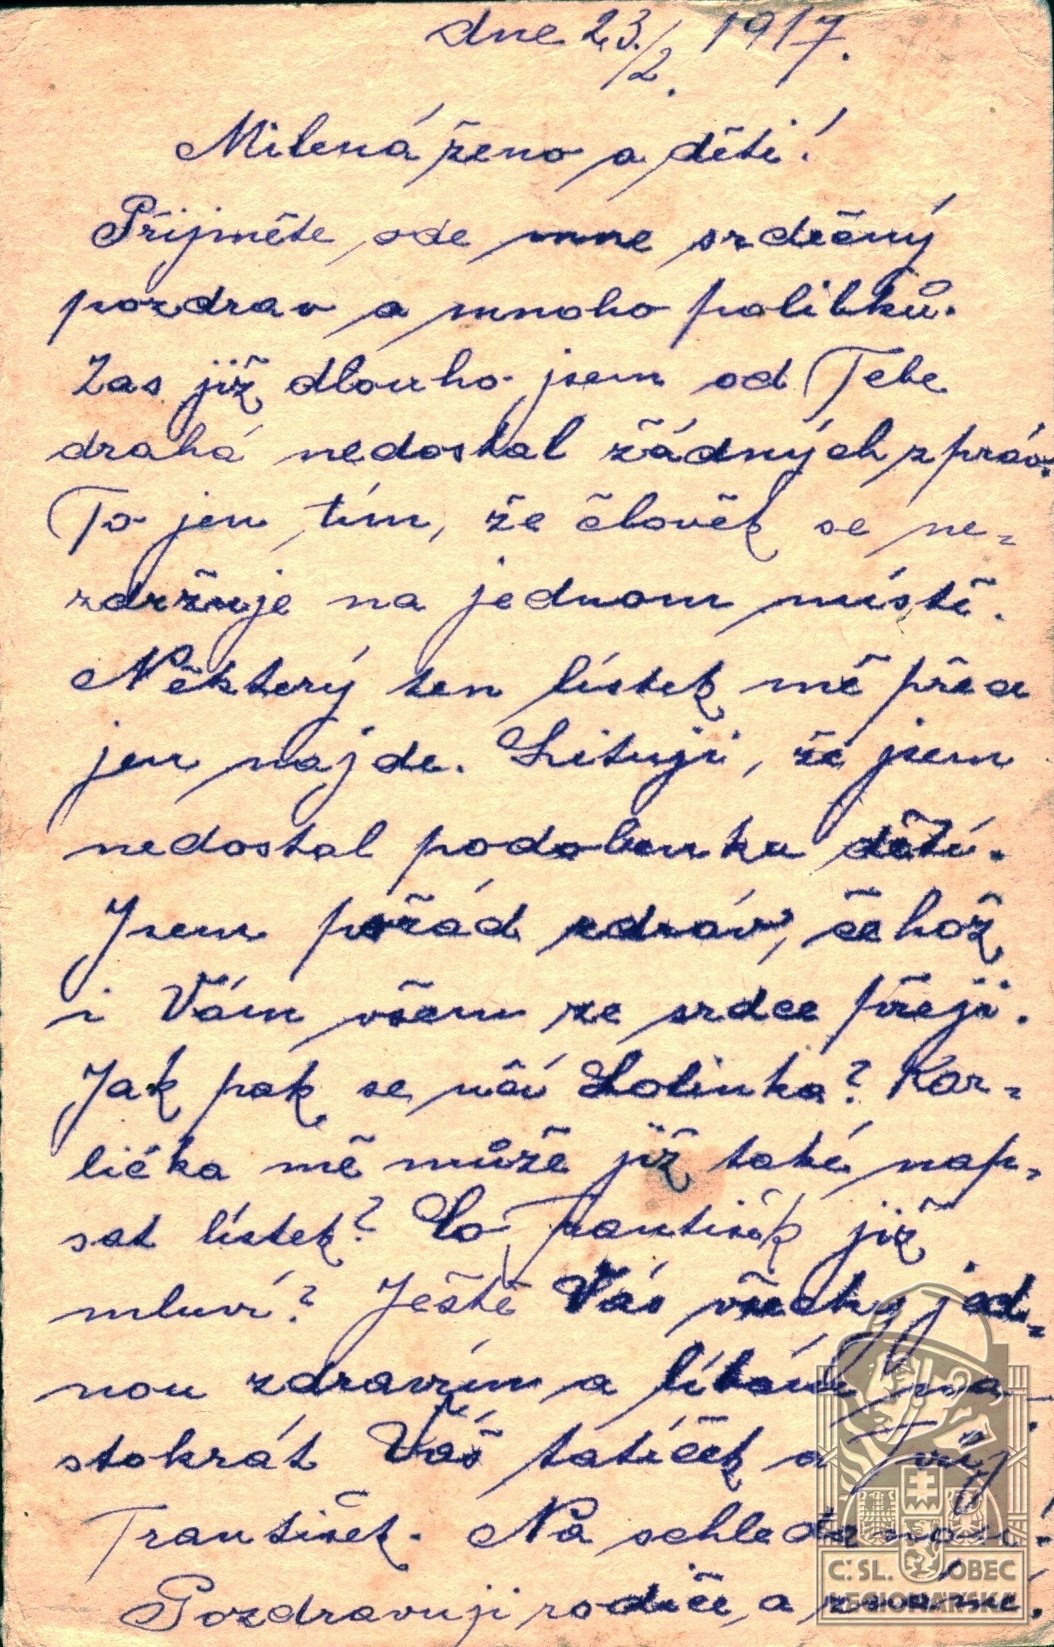 dne 23./2. 1917.
Milená ženo a děti!
Přijměte ode mne srdečný
pozdrav a mnoho polibků.
Zas již dlouho jsem od Tebe
drahá nedostal žádných zpráv.
To jen tím, že člověk se ne-
zdržuje na jednom místě.
Některý ten lístek mě přece
jen najde. Lituji, že jsem
nedostal podobenku dětí.
Jsem pořád zdráv, čehož
i Vám všem ze srdce přeji.
Jak pak se má Lolinka? Kar-
lička mě může již také nap-
sat lístek? Co František již
mluví? Ještě Vás všecky jed-
nou zdravím a líbám na-
stokrát Váš tatíček a Tvůj
František. Na schledanou!
Pozdravuji rodiče a známé.
Č.SL. OBEC
LEGIONÁŘSKÁ